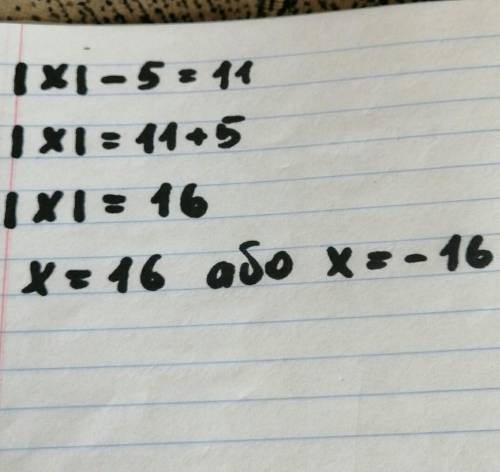 |x| - 5 = 11
|x| = 11 + 5
|x| = 16
x = 16 або x = - 16